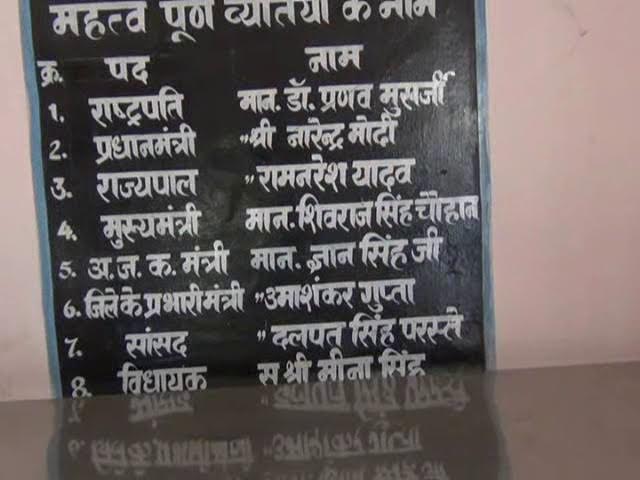 महत्व पूर्ण व्यतियों के नाम
क्र. पद नाम
1. राष्ट्रपति मान. डॉ. प्रणव मुसर्जी
2. प्रधानमंत्री "श्री नारेन्द्र मोदी
3. राज्यपाल "रामनरेश यादव
4. मुख्यमंत्री मान. शिवराज सिंह चौहान
5. अ. ज. क. मंत्री मान. ज्ञान सिंह जी
6. जिले के प्रभारी मंत्री "उमाशंकर गुप्ता
7. सांसद "दलपत सिंह परस्ते
8. विधायक सुश्री मीना सिंह